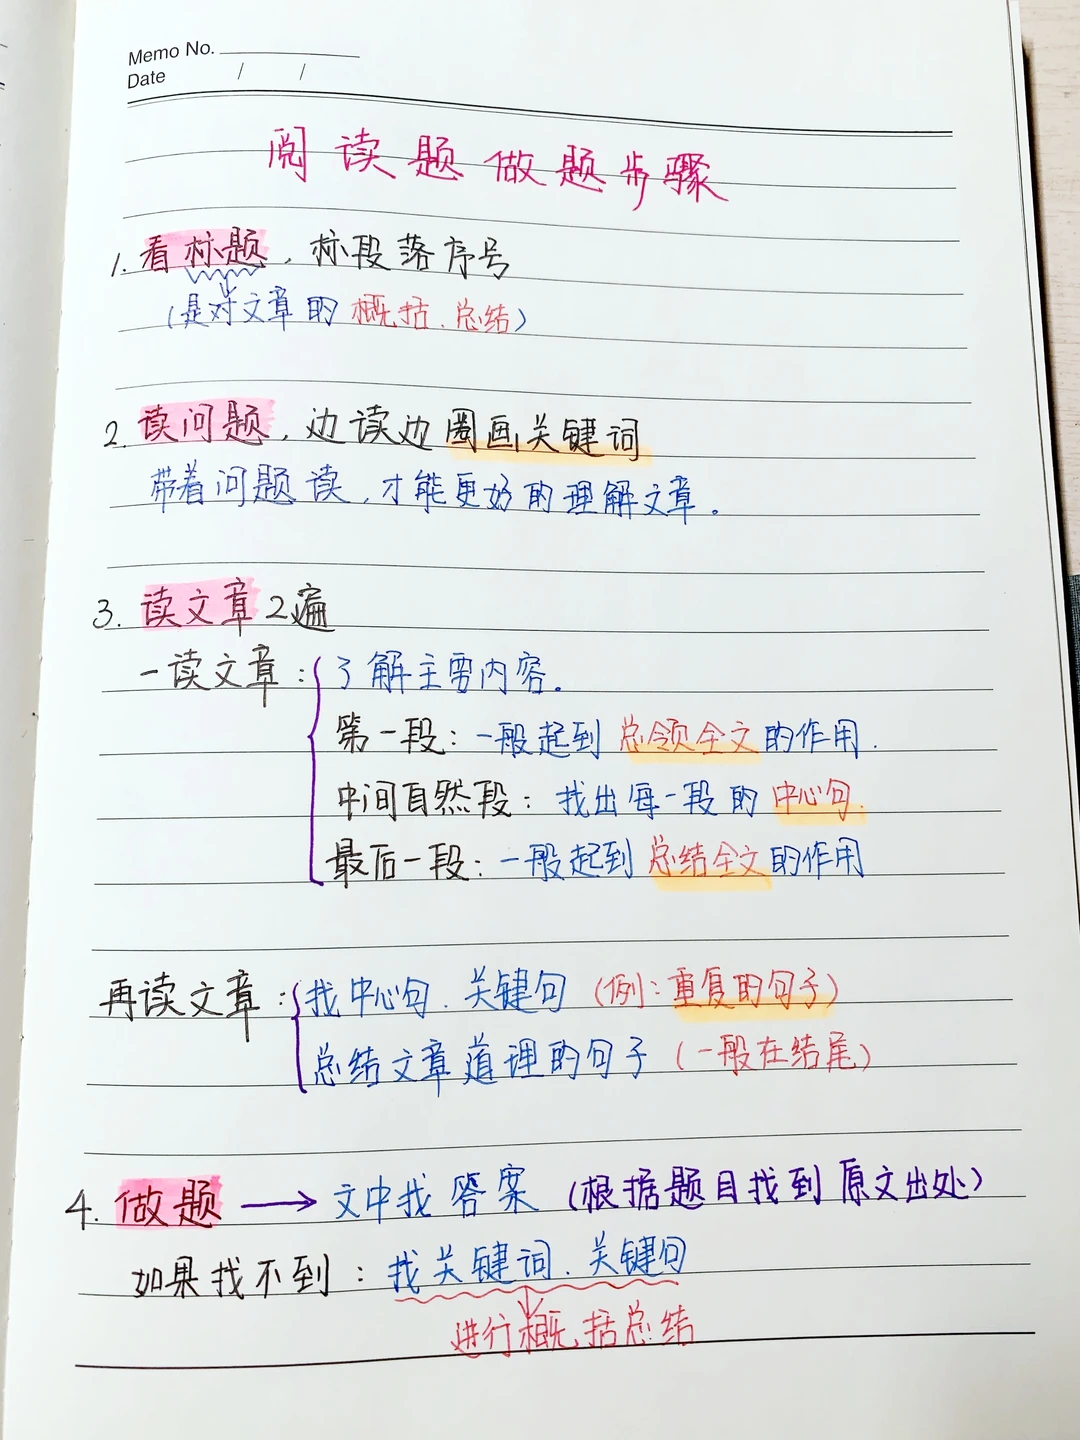 Memo No.
Date / /
阅读题做题步骤
1. 看标题，标段落序号
（是对文章的概括、总结）
2. 读问题，边读边圈画关键词
带着问题读，才能更好的理解文章。
3. 读文章2遍
一读文章：了解主要内容。
第一段：一般起到总领全文的作用.
中间自然段：找出每一段的中心句.
最后一段：一般起到总结全文的作用
再读文章：找中心句、关键句（例：重复的句子）
总结文章道理的句子（一般在结尾）
4. 做题→文中找答案（根据题目找到原文出处）
如果找不到：找关键词、关键句
进行概括总结